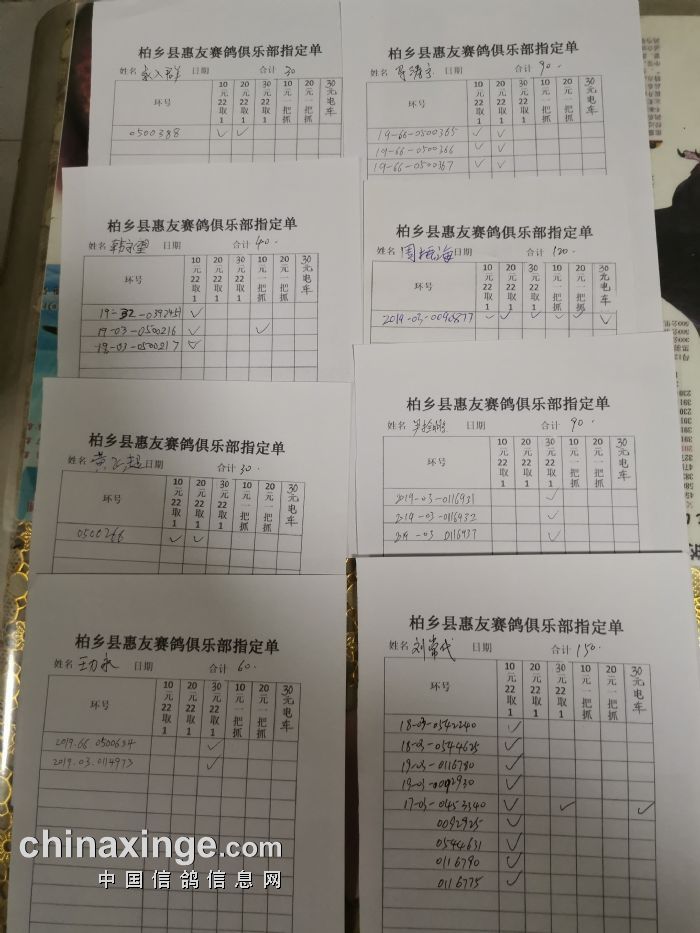 柏乡县惠友赛鸽俱乐部指定单
姓名 日期 合计 30
环号 10元22取1 20元22取1 30元22取1 10元一把抓 20元一把抓 30元电车
0500388 ✓ ✓
柏乡县惠友赛鸽俱乐部指定单
姓名 日期 合计 90.
环号 10元22取1 20元22取1 30元22取1 10元一把抓 20元一把抓 30元电车
19-66-0500365 ✓ ✓
19-66-0500366 ✓ ✓
19-66-0500367 ✓ ✓
柏乡县惠友赛鸽俱乐部指定单
姓名 日期 合计 40.
环号 10元22取1 20元22取1 30元22取1 10元一把抓 20元一把抓 30元电车
19-32-0392451 ✓
19-03-0500216 ✓ ✓
19-03-0500217 ✓
柏乡县惠友赛鸽俱乐部指定单
姓名 周振海 日期 合计 120.
环号 10元22取1 20元22取1 30元22取1 10元一把抓 20元一把抓 30元电车
2019-03-0090877 ✓ ✓ ✓ ✓ ✓ ✓
柏乡县惠友赛鸽俱乐部指定单
姓名 黄飞超 日期 合计 30.
环号 10元22取1 20元22取1 30元22取1 10元一把抓 20元一把抓 30元电车
0500266 ✓ ✓
柏乡县惠友赛鸽俱乐部指定单
姓名 日期 合计 90.
环号 10元22取1 20元22取1 30元22取1 10元一把抓 20元一把抓 30元电车
2019-03-0116931 ✓
2019-03-0116932 ✓
2019-03 0116937 ✓
柏乡县惠友赛鸽俱乐部指定单
姓名 日期 合计 60.
环号 10元22取1 20元22取1 30元22取1 10元一把抓 20元一把抓 30元电车
2019.66 0500634 ✓
2019.03.0114973 ✓
柏乡县惠友赛鸽俱乐部指定单
姓名 刘常代 日期 合计 150.
环号 10元22取1 20元22取1 30元22取1 10元一把抓 20元一把抓 30元电车
18-03-0542240 ✓
18-03-0544625 ✓
19-03-0116780 ✓
19-03-0092930 ✓
17-03-0453340 ✓ ✓ ✓
0092925 ✓
0544631 ✓
0116790 ✓
0116775 ✓
chinaxinge.com
中国信鸽信息网